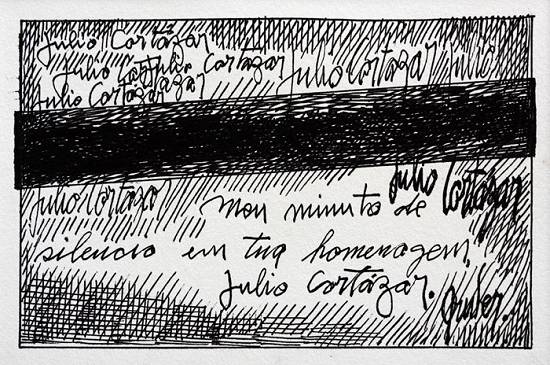 Julio Cortázar
Julio Cortázar
julio cortázar julio
Julio Cortázar
julio Cortázar
julio Cortázar
meu minuto de
silencio em tua homenagem,
Julio Cortázar.